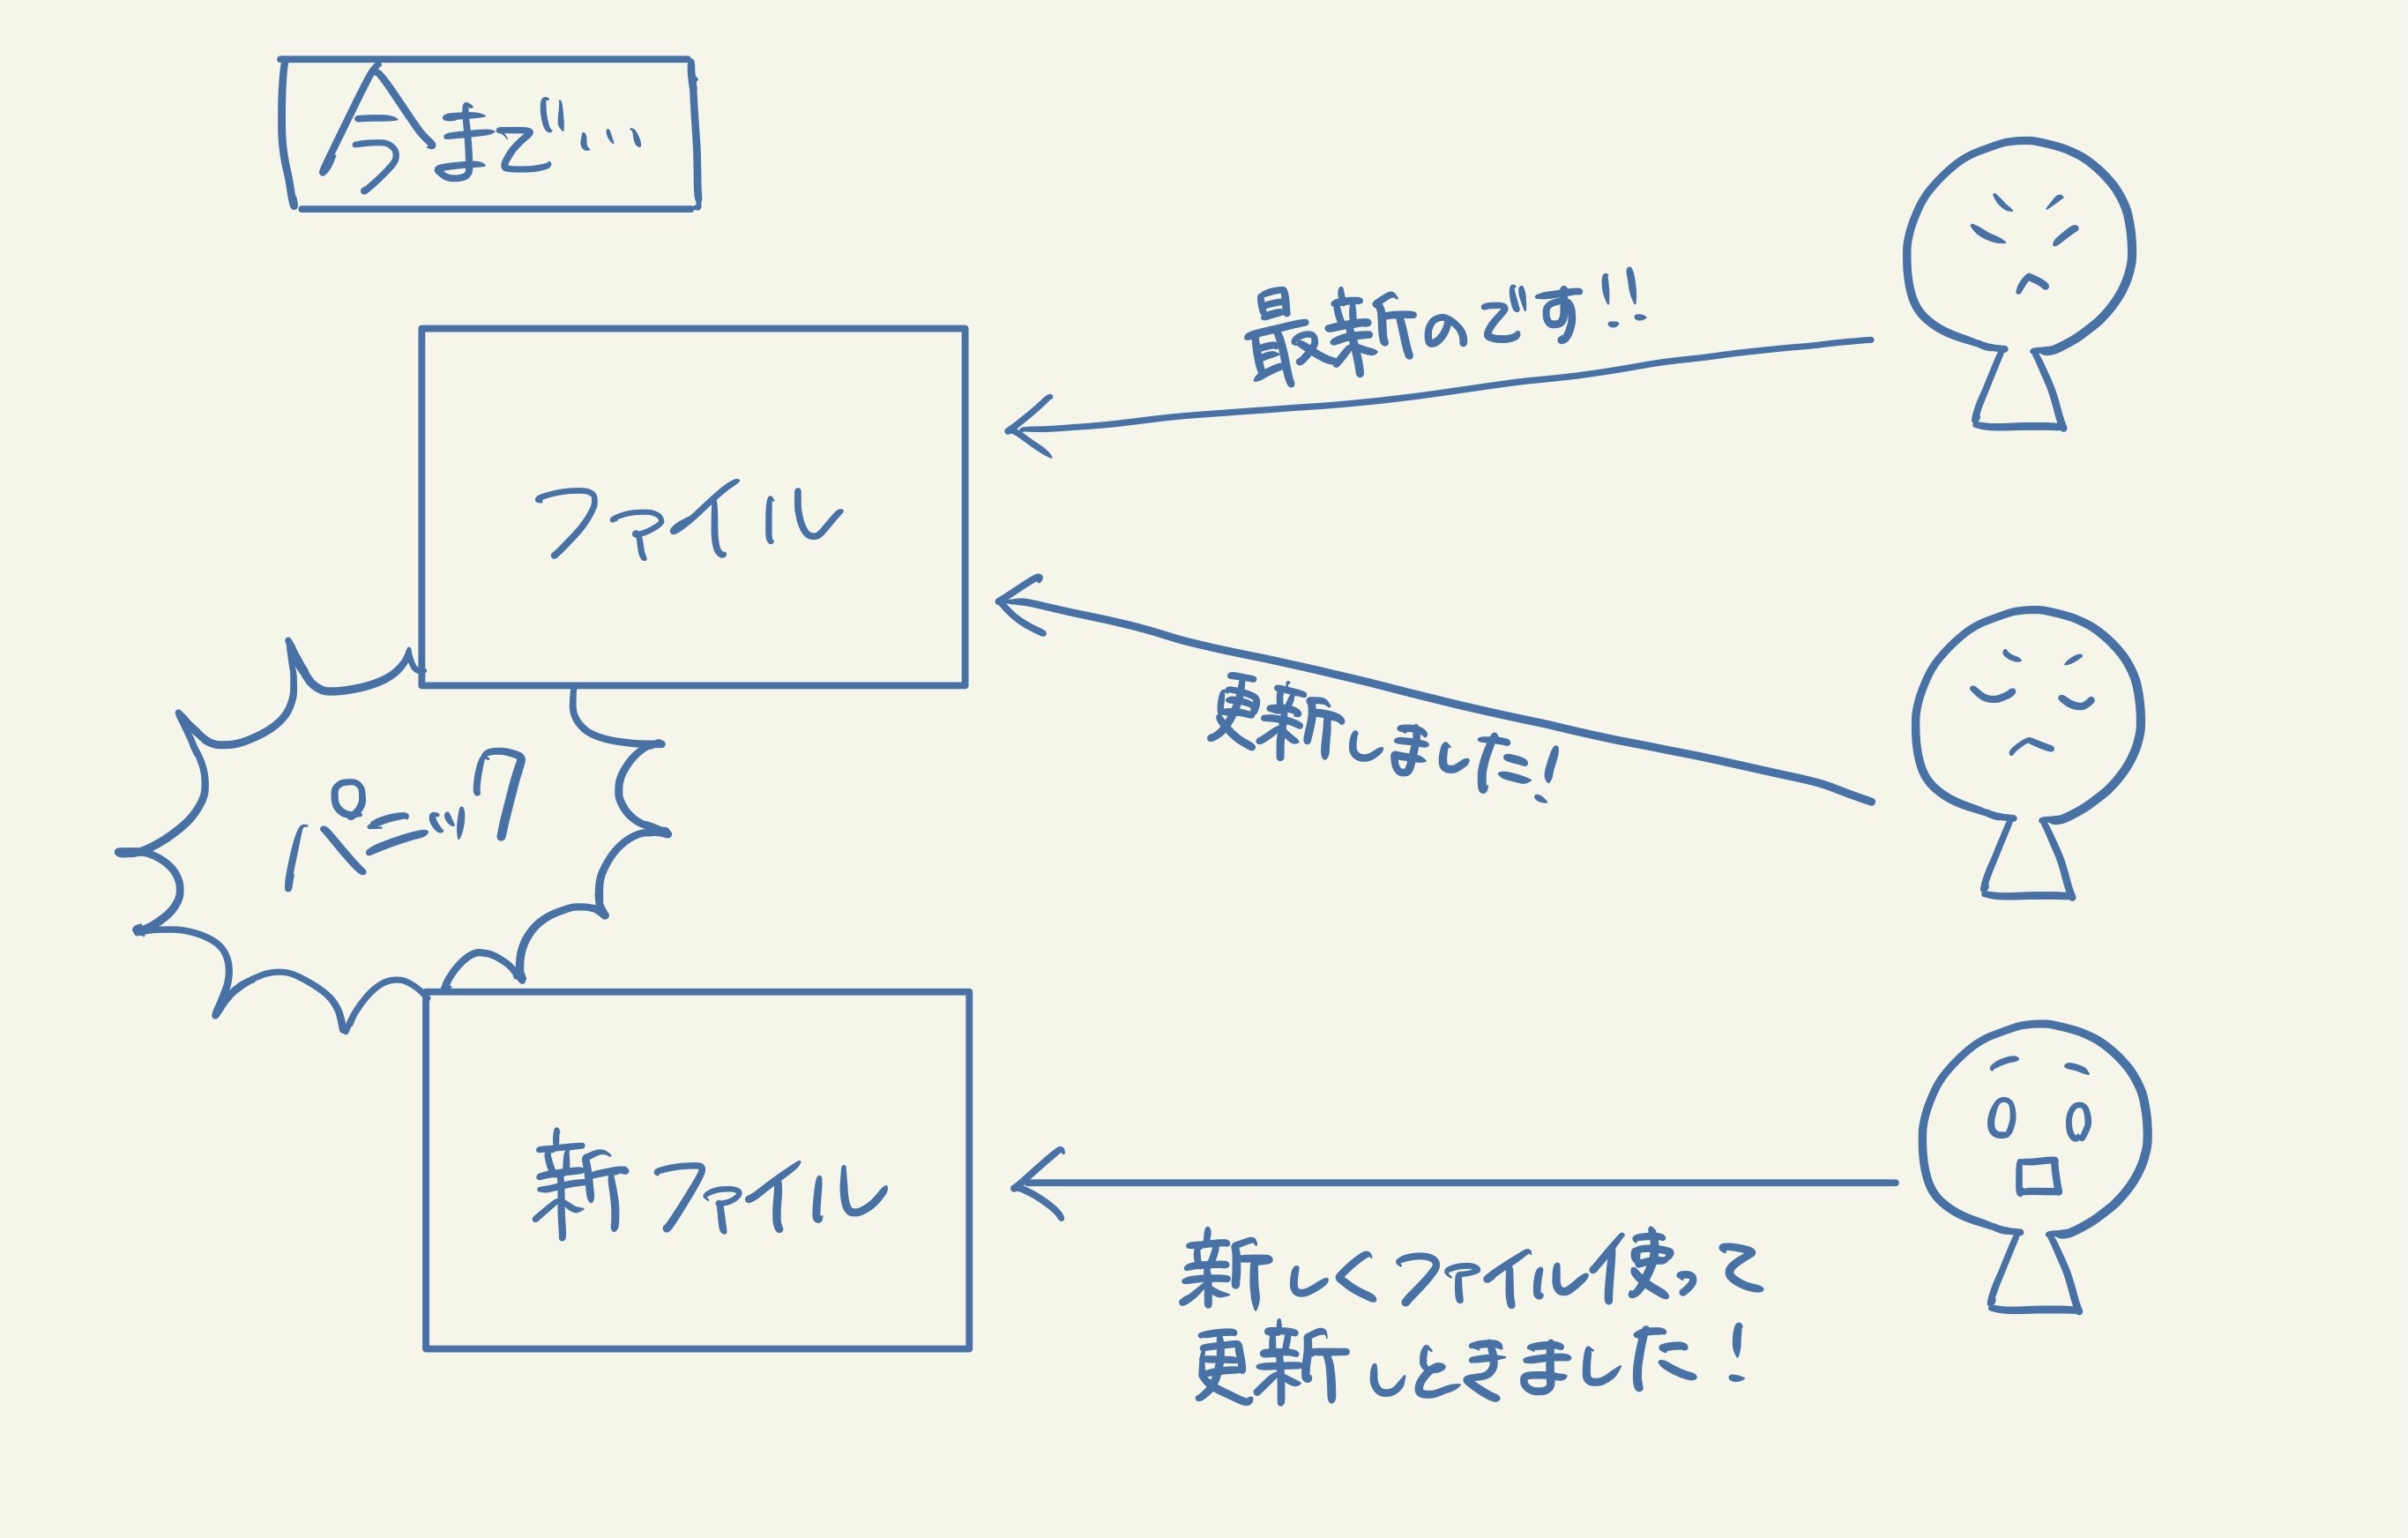 今まで…
最新のです!!
ファイル
更新しました!
パニック
新ファイル
新しくファイル使って
更新しときました!